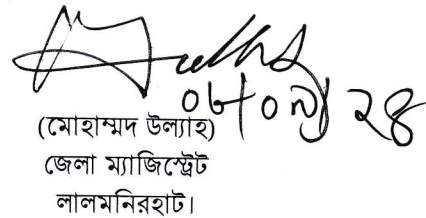 ০৮/০৭/২৪
(মোহাম্মদ উল্যাহ)
জেলা ম্যাজিস্ট্রেট
লালমনিরহাট।